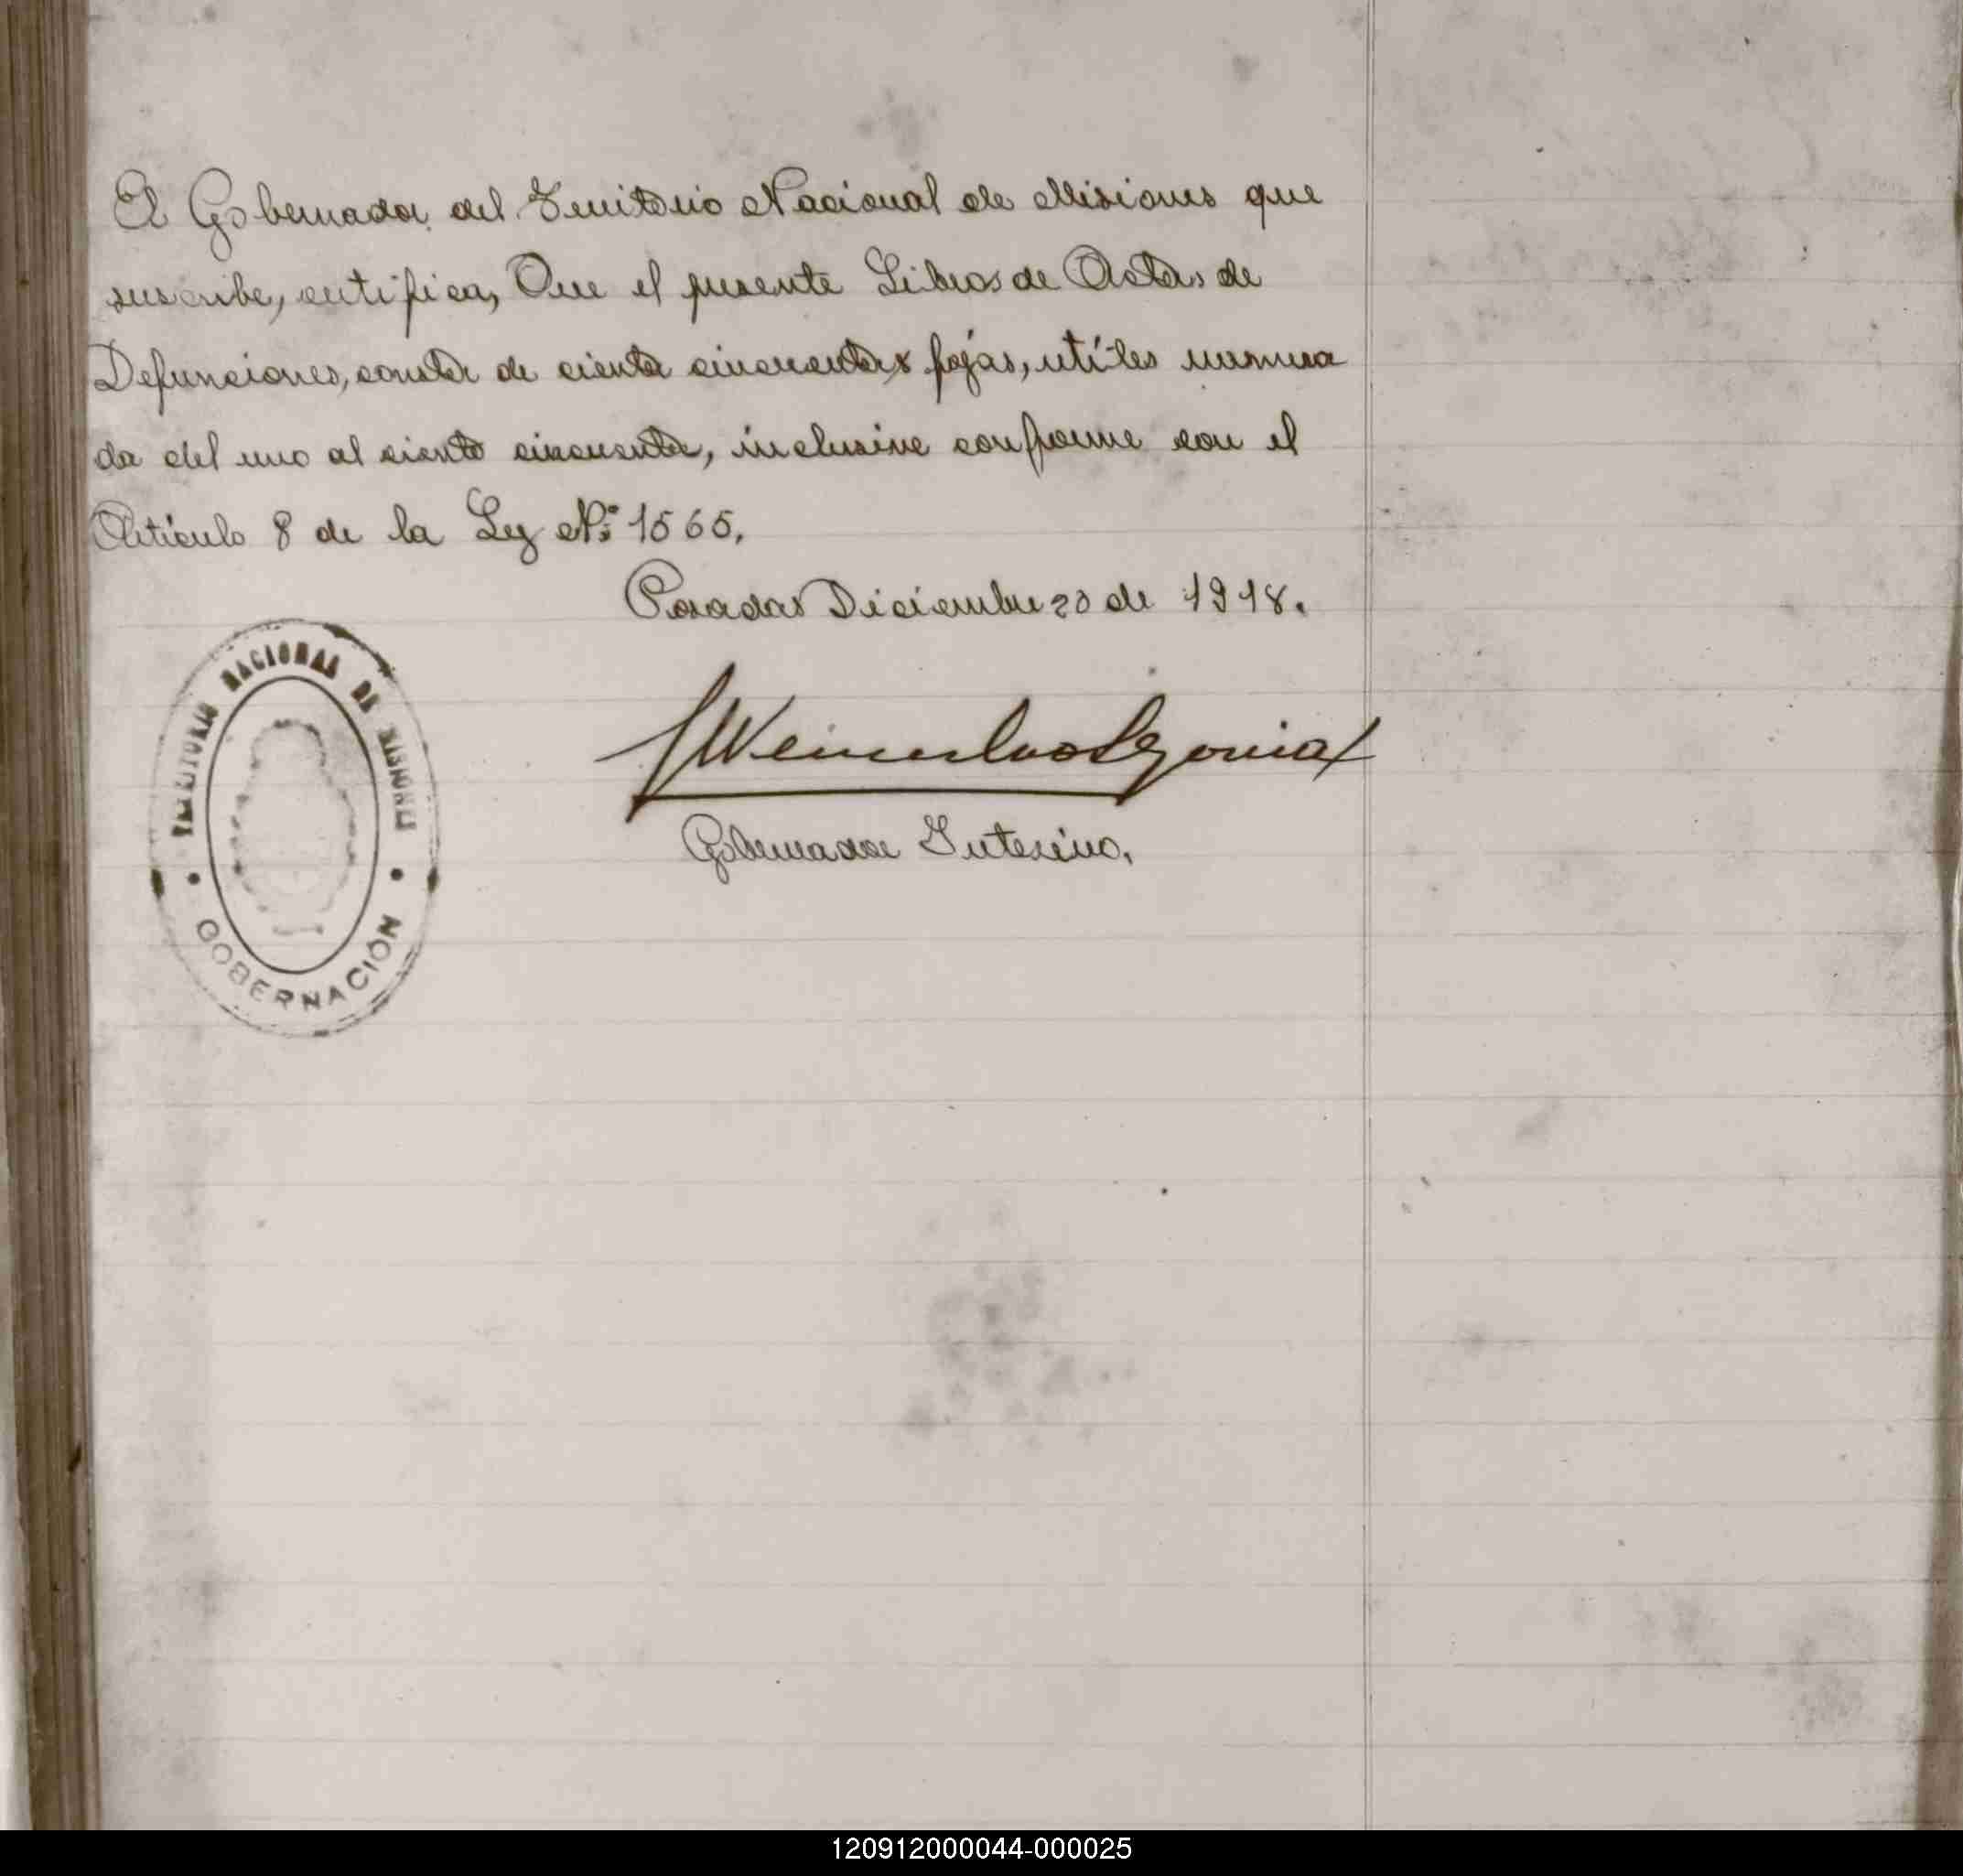 El Gobernador del Territorio Nacional de Misiones que
suscribe, certifica, Que el presente Libros de Actas de
Defunciones, consta de cienta cincuentas fojas, utíles numera
da del uno al ciento cincuenta, inclusive conforme con el
Artículo 8 de la Ley Nº 1565.
Posadas Diciembre 20 de 1918.
TERRITORIO NACIONAL DE MISIONES
GOBERNACIÓN
Gobernador Interino.
120912000044-000025